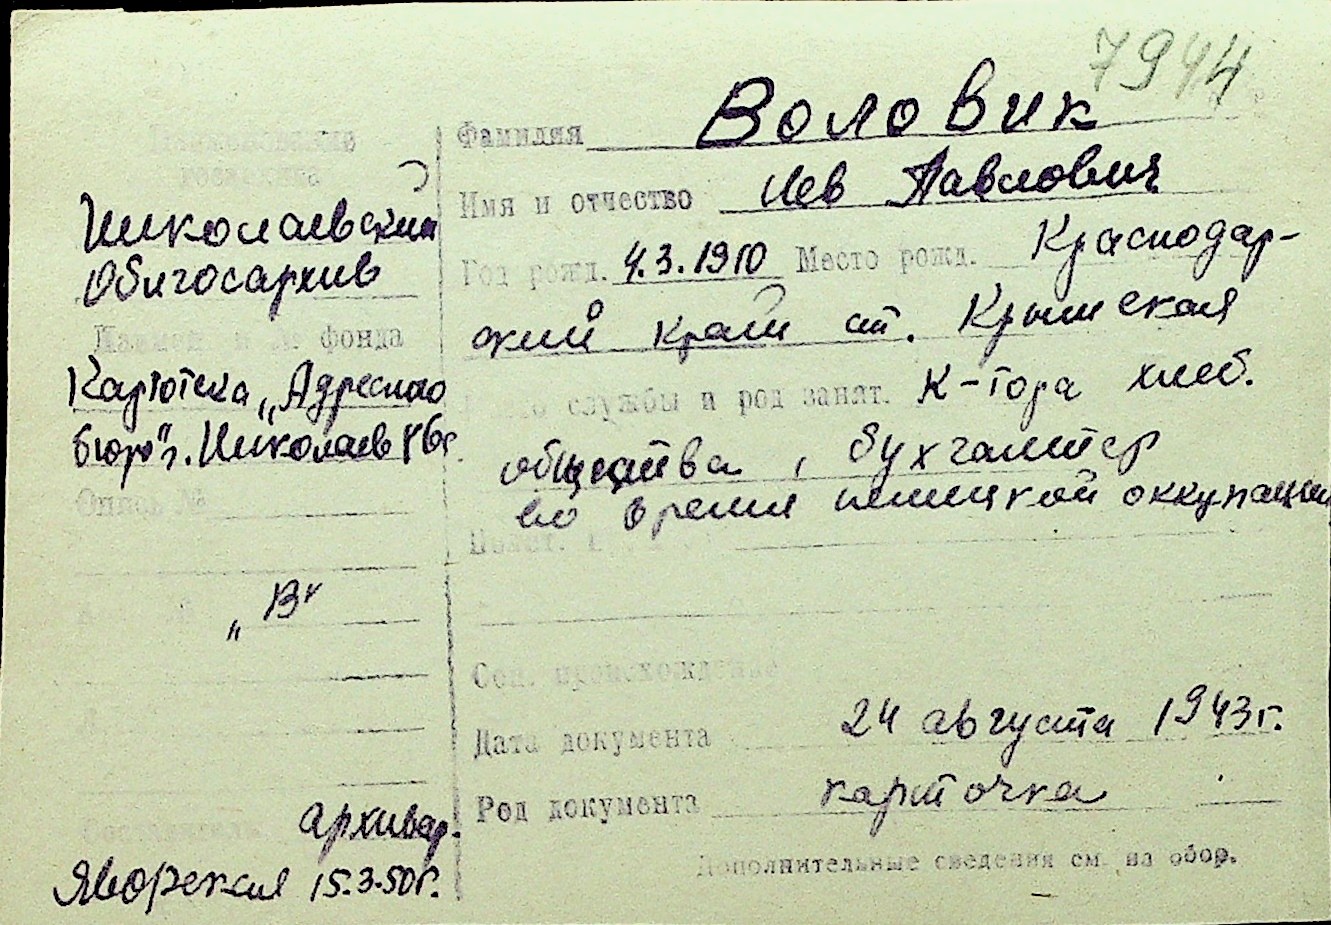 7944
Фамилия Воловик
Имя и отчество Лев Павлович
Год рожд. 4.3.1910 Место рожд. Краснодар-
ский край ст. Крымская
службы и род занят. К-тора хлеб.
общества, бухгалтер
во время немецкой оккупации
Соц. происхождение
Дата документа 24 августа 1943 г.
Род документа карточка
Дополнительные сведения см. на обор.
Наименование
госархива
Николаевский
Облгосархив
№ фонда
Картотека „Адресного
бюро" г. Николаев
Опись №
„В"
архивар.
Яворская 15.3.50 г.